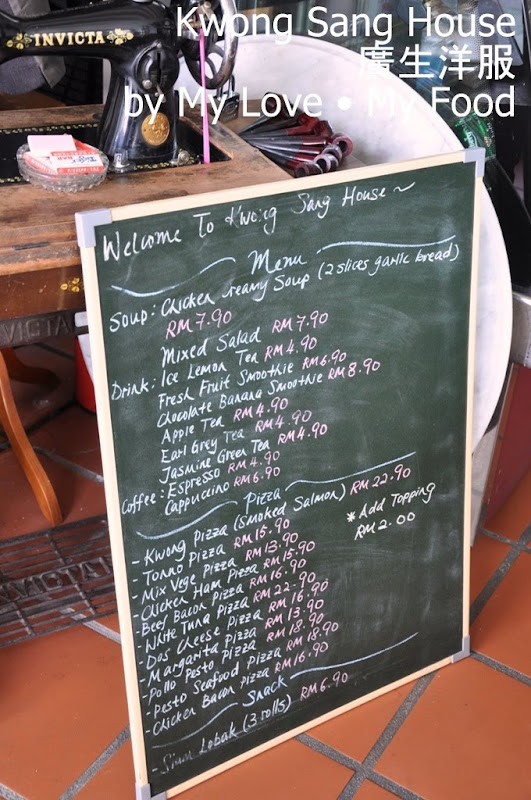 Kwong Sang House
廣生洋服
by My Love • My Food
INVICTA
Welcome To Kwong Sang House ~
Menu
Soup: Chicken Creamy Soup (2 slices garlic bread)
RM 7.90
Mixed Salad RM 7.90
Drink: Ice Lemon Tea RM 4.90
Fresh Fruit Smoothie RM 6.90
Chocolate Banana Smoothie RM 8.90
Apple Tea RM 4.90
Earl Grey Tea RM 4.90
Jasmine Green Tea RM 4.90
Coffee: Espresso RM 4.90
Cappuccino RM 6.90
Pizza
- Kwong Pizza (Smoked Salmon) RM 22.90
* Add Topping
RM 2.00
- Tonno Pizza RM 15.90
- Mix Vege Pizza RM 13.90
- Chicken Ham Pizza RM 15.90
- Beef Bacon Pizza RM 16.90
- White Tuna Pizza RM 22.90
- Das Cheese Pizza RM 16.90
- Margarita Pizza RM 13.90
- Pollo Pesto Pizza RM 18.90
- Pesto Seafood Pizza RM 18.90
- Chicken Bacon Pizza RM 16.90
Snack
- Siam Lobak (3 rolls) RM 6.90
INVICTA
INVICTA